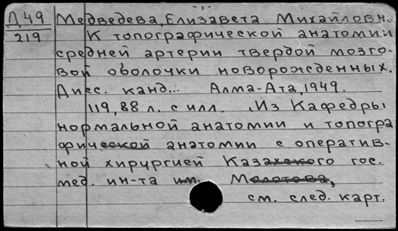 Д 49 Медведева, Елизавета Михайловн.
219 К топографической анатомии
средней артерии твердой мозго-
вой оболочки новорожденных.
Дисс. канд... Алма-Ата, 1949.
119, 88 л. с илл. Из Кафедры
нормальной анатомии и топогра
фической анатомии с оператив-
ной хирургией Казахского гос.
мед. ин-та им. Молотова,
см. след. карт.